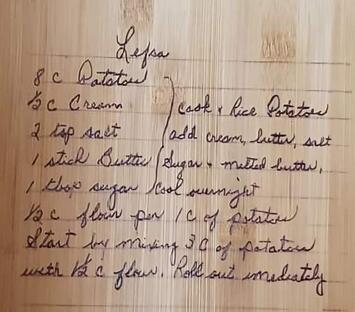 Lefsa
8 c Potatoes
½ c Cream
2 tsp salt
1 stick Butter
1 tbsp sugar
cook & Rice Potatoes
add cream, butter, salt
Sugar & melted butter.
Cool overnight
½ c flour per 1 C of potatoes
Start by mixing 3 C of potatoes
with 1½ c flour. Roll out imediately